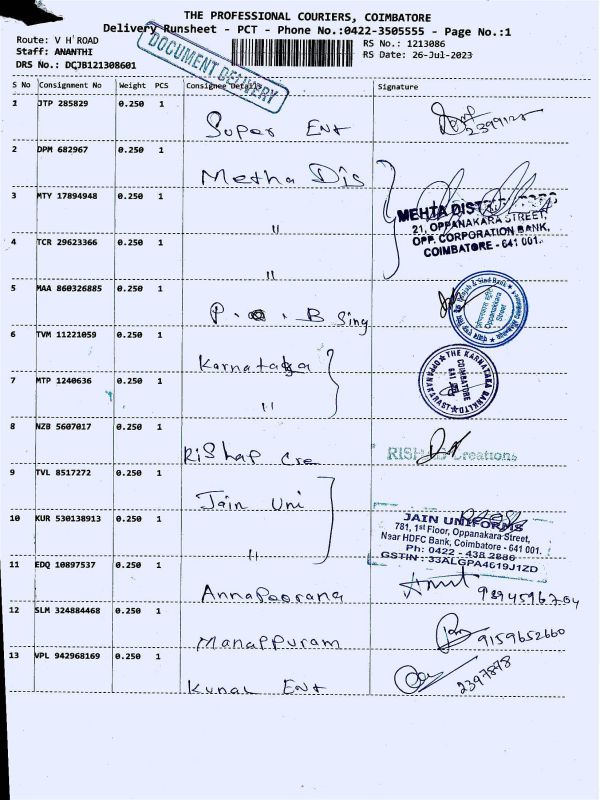 THE PROFESSIONAL COURIERS, COIMBATORE
Delivery Runsheet - PCT - Phone No.:0422-3505555 - Page No.:1
Route: V H ROAD
RS No.: 1213086
Staff: ANANTHI
RS Date: 26-Jul-2023
DRS No.: DCJB121308601
DOCUMENT DELIVERY
S No Consignment No Weight PCS Consignee Details Signature
1 JTP 285829 0.250 1
Super Ent
2 DPM 682967 0.250 1
Metha Dis
3 MTY 17894948 0.250 1
"
MEHTA DISTRIBUTORS
21, OPPANAKARA STREET,
OPP. CORPORATION BANK,
COIMBATORE - 641 001.
4 TCR 29623366 0.250 1
"
5 MAA 860326885 0.250 1
P. B Sing
Punjab & Sind Bank
Oppanakkara
Street
6 TVM 11221059 0.250 1
Karnataka
THE KARNATAKA BANK LTD
OPPANAKARA ST
COIMBATORE
641 001
7 MTP 1240636 0.250 1
"
8 NZB 5607017 0.250 1
Rishap Cre
RISHAB Creations
9 TVL 8517272 0.250 1
Jain Uni
10 KUR 530138913 0.250 1
"
JAIN UNIFORMS
781, 1st Floor, Oppanakara Street,
Near HDFC Bank, Coimbatore - 641 001.
Ph: 0422 - 438 2886
GSTIN : 33ALGPA4619J1ZD
11 EDQ 10897537 0.250 1
Annapoorana
12 SLM 324884468 0.250 1
Manappuram
9159652660
13 VPL 942968169 0.250 1
Kunal Ent
2397878